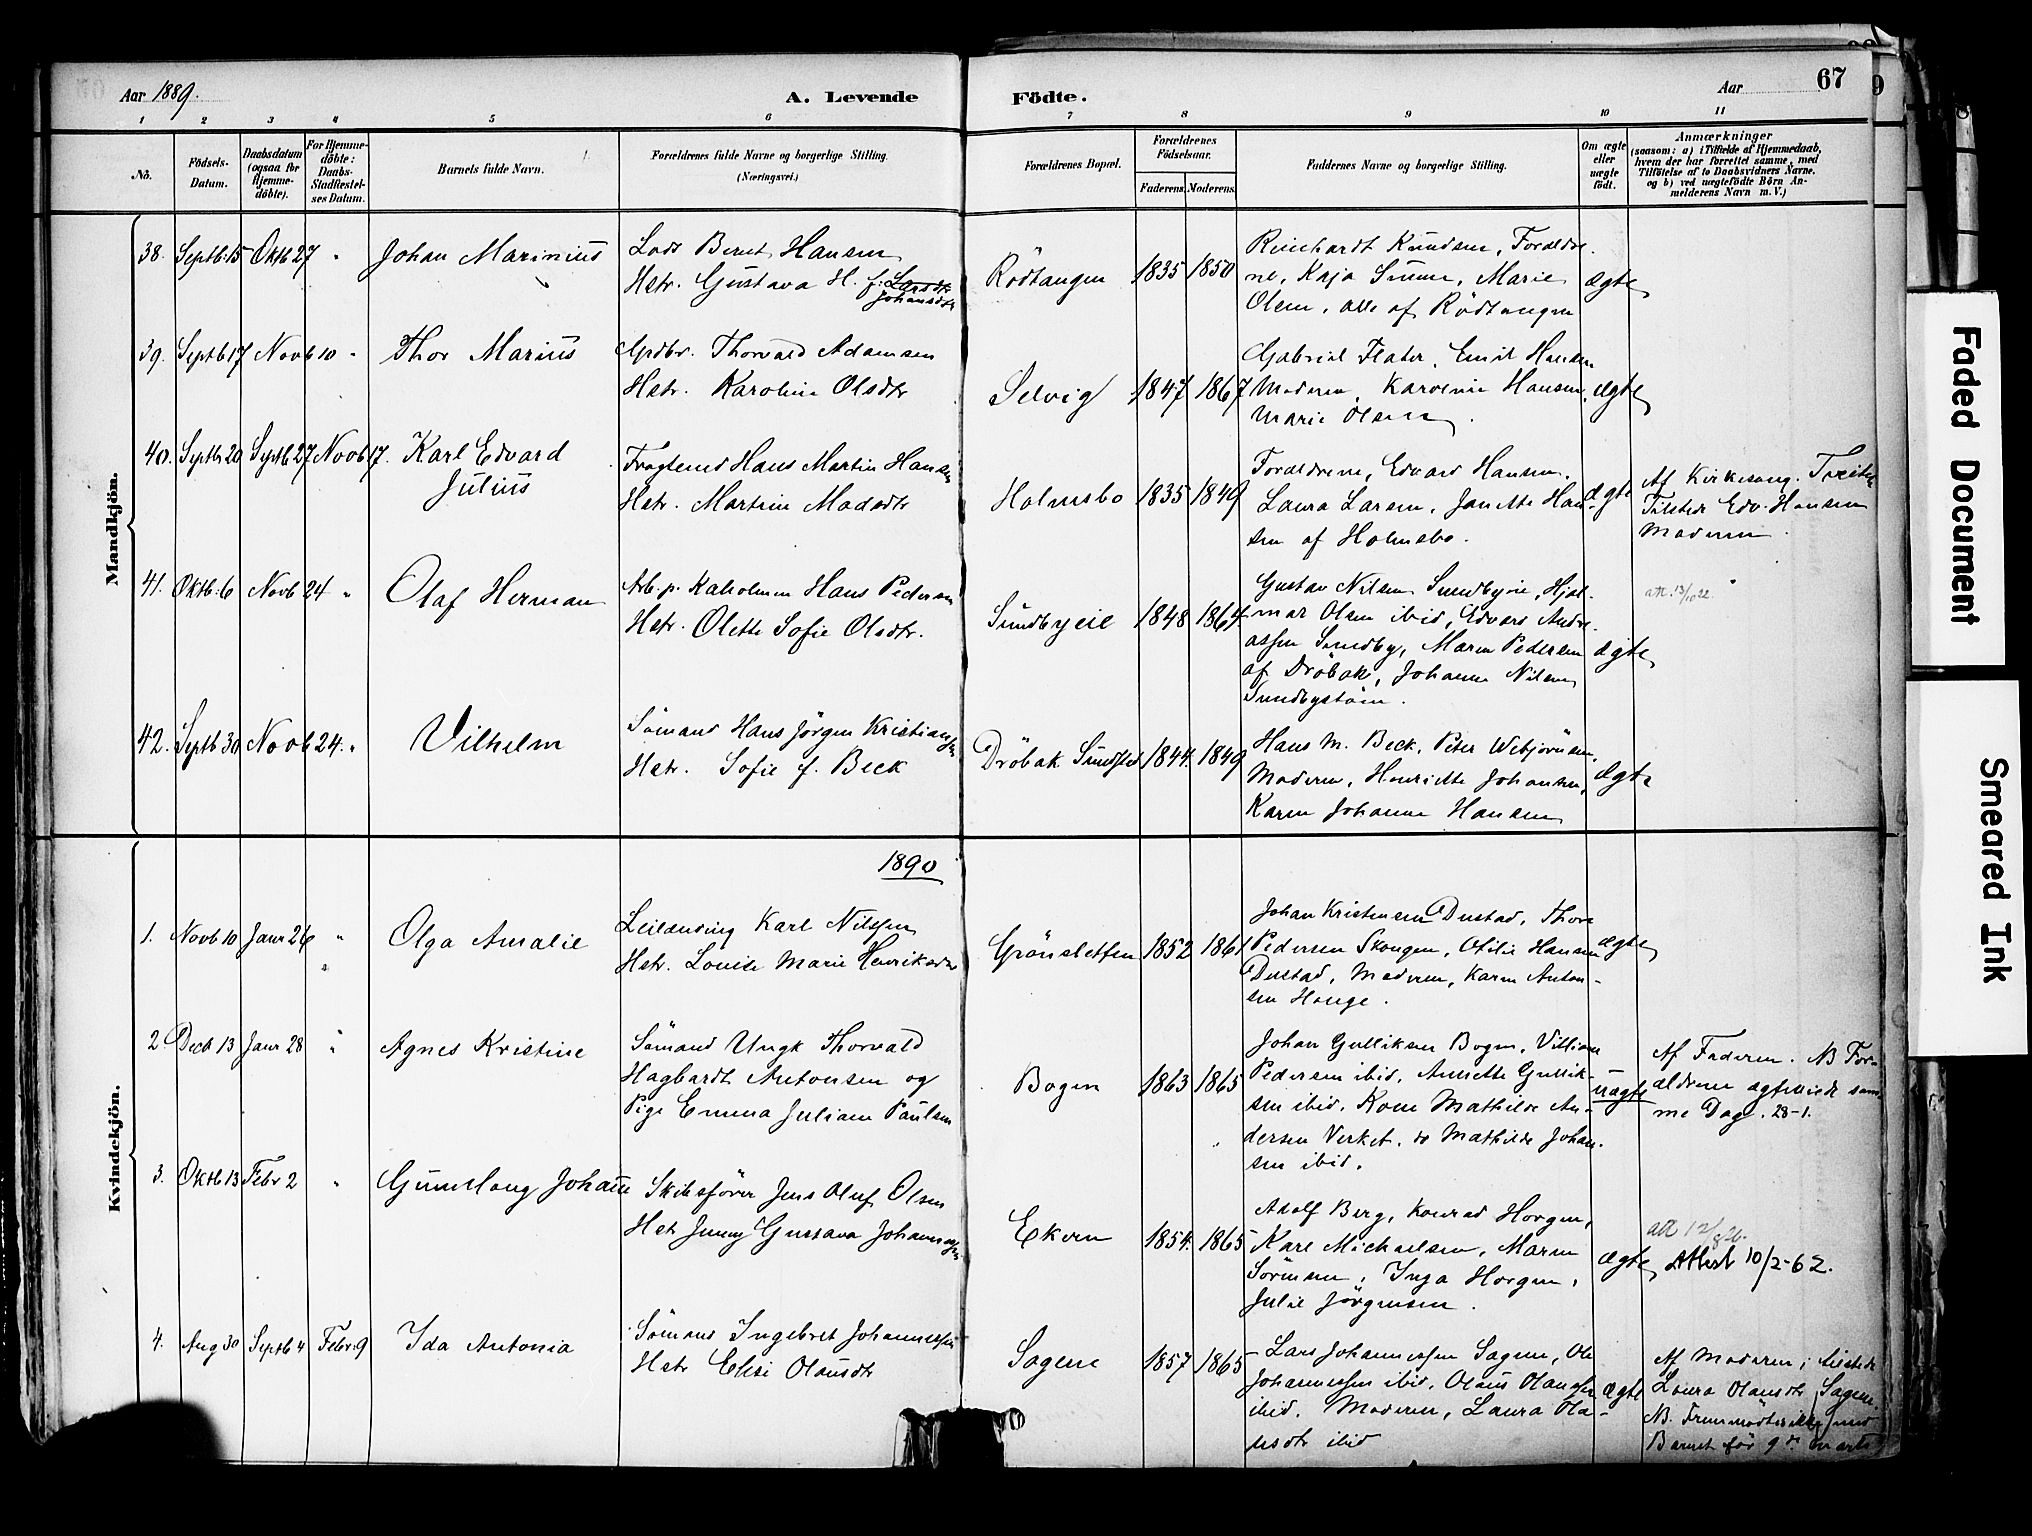 Aar 1889.
A. Levende
Födte.
Aar
67
1 2 3 4 5 6 7 8 9 10 11
No.
Födsels-
Datum.
Daabsdatum
(ogsaa for
Hjemme-
döbte).
For Hjemme-
döbte:
Daabs-
Stadfæstel-
ses Datum.
Barnets fulde Navn.
Forældrenes fulde Navne og borgerlige Stilling.
(Næringsvei.)
Forældrenes Bopæl.
Forældrenes
Födselsaar.
Faderens. Moderens.
Faddernes Navne og borgerlige Stilling.
Om ægte
eller
uægte
födt.
Anmærkninger
(saasom: a) i Tilfælde af Hjemmedaab,
hvem der har forrettet samme, med
Tilföielse af to Daabsvidners Navne,
og b) ved uægtefödte Börn An-
melderens Navn m. V.)
Mandkjön.
38. Septb. 15 Oktb 27 " Johan Marinius
Lods Bernt Hansen
Hstr. Gustava H. f. Larsdtr
Johansdtr
Rödtangen 1835 1850
Reinhardt Knudsen, Foraldre-
ne, Kaja Simme, Marie
Olsen, alle af Rödtangen
ægte
39. Septb 17 Novb 10 " Thor Marius
Gpdbr. Thorvald Adamsen
Hstr. Karoline Olsdtr
Selvig 1847 1867
Gabriel Flater, Emil Hansen
Moderen, Karoline Hansen,
Marie Olsen.
ægte
40. Septb 20 Septb 27 Novb 17. Karl Edvard
Julius
Fragtemd Hans Martin Hansen
Hstr. Martine Madsdtr
Holmsbo 1835 1849
Foraldrene, Edvard Hansen,
Laura Larsen, Janette Han-
sen af Holmsbo.
ægte
Af Kirkesang.
Tilstede Edv. Hansen
Moderen.
41. Oktb. 6 Novb 24 " Olaf Herman
Arb. p. Kaholmen Hans Pedersen
Hstr. Olette Sofie Olsdtr.
Sundbyeie 1848 1864
Gustav Nilsen Sundbyeie, Hjal-
mar Olsen ibid, Edvard Andre-
assen Sundby, Maren Pedersen
af Dröbak, Johanne Nilsen
ægte
att. 13/10 22.
42. Septb 30 Novb 24. " Vilhelm
Sömand Hans Jörgen Kristiansen
Hstr. Sofie f. Beck
Dröbak Sundsted 1844. 1849
Hans M. Beck, Peter Webjörnsen,
Moderen, Henriette Johansen,
Karen Johanne Hansen
ægte
1890
Kvindekjön.
1. Novb 10 Janr 26 " Olga Amalie
Leilænding Karl Nilssen
Hstr. Louise Marie Henriksdtr
Grönsletten 1852 1861
Johan Kristensen Dustad, Thora
Pedersen Skougen, Otilie Hansen
Dustad, Moderen, Karen Anton-
sen Houge.
ægte
2. Decb 13 Janr 28 " Agnes Kristine
Sömand Ungk Thorvald
Hagbardt Antonsen og
Pige Emma Juliane Paulsen
Bogen 1863 1865
Johan Gulliksen Bogen, Villiam
Pedersen ibid, Annette Gullik-
sen ibid. Kone Mathilde An-
dersen Verket, do Mathilde Johan-
sen ibid.
uægte
Af Faderen. NB For-
aldrene ægteviede sam-
me Dag. 28-1.
3. Oktb 13 Febr 2 " Gunnlaug Johanne
Skibsförer Jens Oluf Olsen
Hstr Jenny Gustava Johannessen
Ekern 1854. 1865
Adolf Berg, Konrad Horgen,
Karl Michaelsen, Maren
Sörensen, Inga Horgen,
Julie Jörgensen.
ægte
att 12/8 26.
Attest 10/2-62.
4. Aug 30 Septb 4 Febr. 9 Ida Antonia
Sömand Ingebret Johannessen
Hstr Elise Olausdtr
Sagene 1857 1865
Lars Johannessen Sagene, Ole
Johannessen ibid, Olaus Olaussen
ibid. Moderen, Laura Ola-
usdtr ibid
ægte
Af Moderen; tilstede
Laura Olausdtr Sagene.
NB. Fremmödte ikke med
Barnet för 9de Marts
Faded Document
Smeared Ink